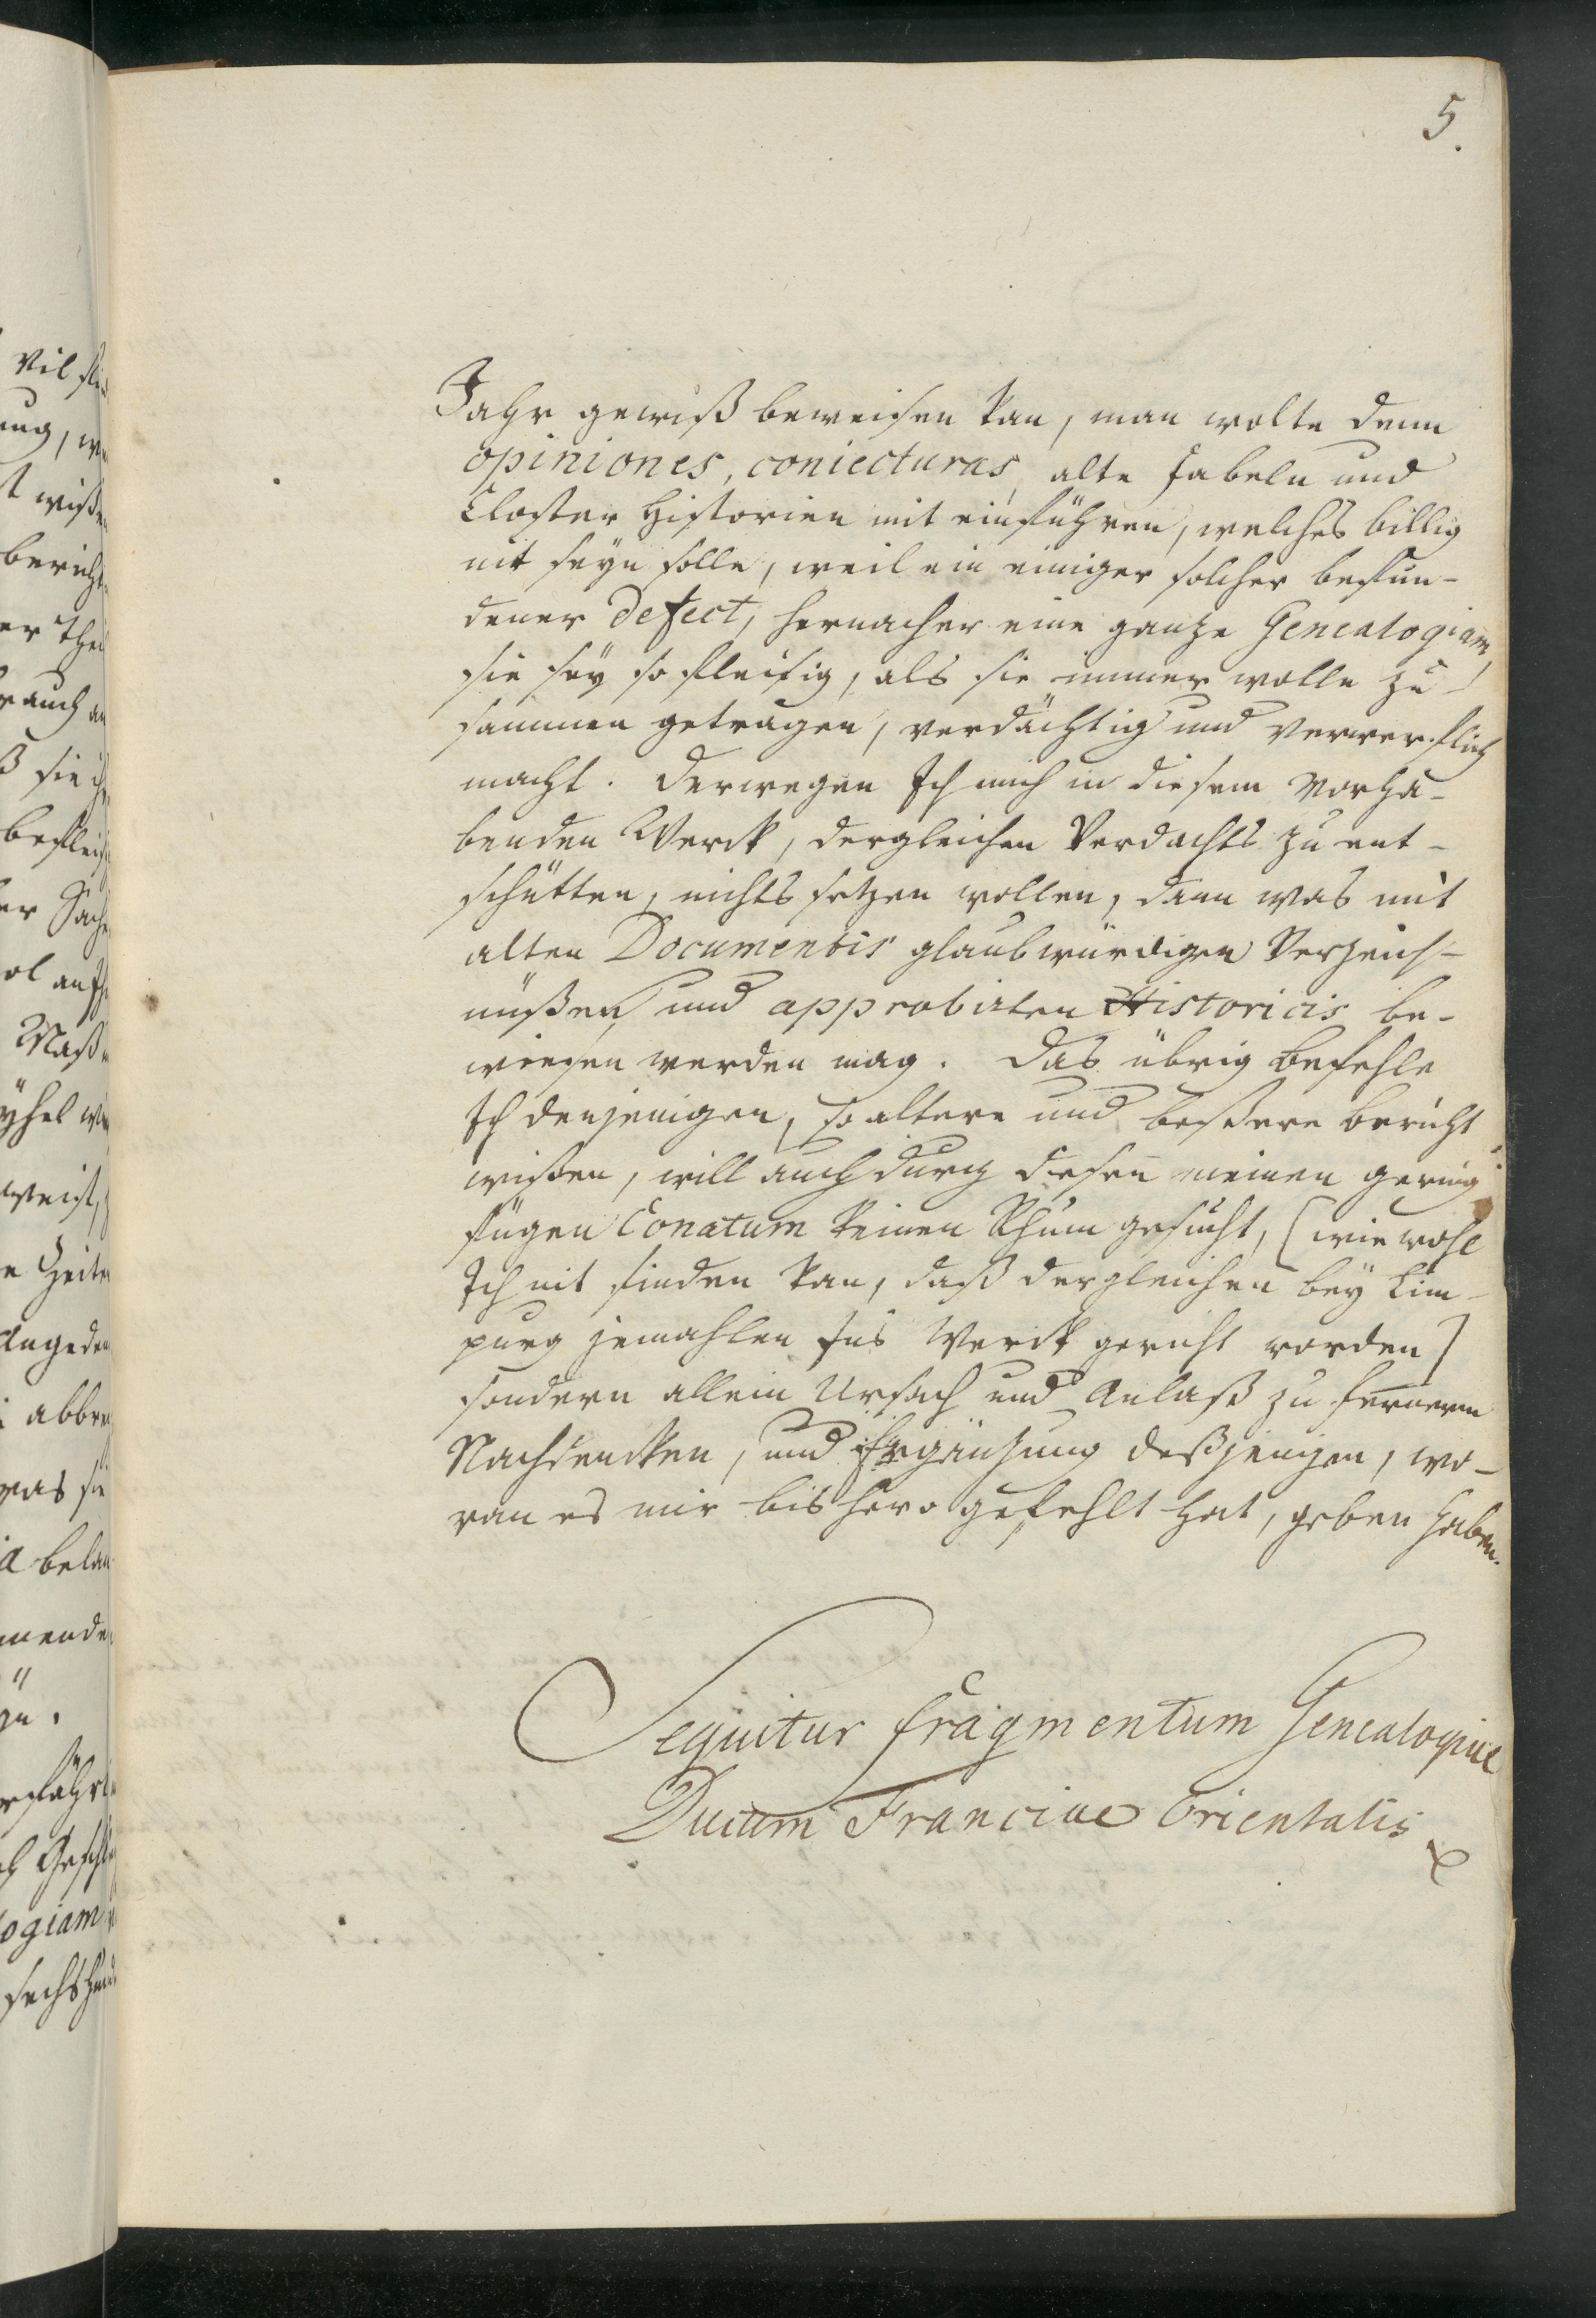 5.
Jahr gewiß beweisen kan, man wolte denn
opiniones, coniecturas, alte fabeln und
Closter Historien mit einführen, welches billig
nit seyn solle, weil ein einiger solcher befun-
dener Defect, hernacher eine ganze Genealogiam,
sie sey so fleisig, als sie immer wolle zu-
sammen getragen, verdächtig und verwerflich
macht. Derwegen Ich mich in diesem Vorha-
benden Werck, dergleichen Verdachts zu ent-
schütten, nichts setzen wollen, dann was mit
alten Documentis glaubwürdigen Verzeich-
nüßen und approbirten Historicis be-
wiesen werden mag. Das übrig befehle
Ich denjenigen, so altere und beßere bericht
wißen, will auch durch diesen meinen gering
fügen Conatum keinen Rhum gesucht, [wie wohl
Ich nit finden kan, daß dergleichen bey Lim-
purg jemahlen Ins Werck gericht worden]
sondern allein Ursach und Anlaß zu fernerm
Nachdencken, und Ergänzung deßjenigen, wo-
ran es mir bishero gefehlt hat, geben haben.
Sequitur fragmentum Genealogiae
Ducum Franciae Orientalis
Vil
ung,
wiße
bericht
er Thei
auch
ß sie
befleis
er Sach
ol
Maß
weist,
e Zeite
Angeden
abbre
was sie
a bela
mende
logiam
sechshund